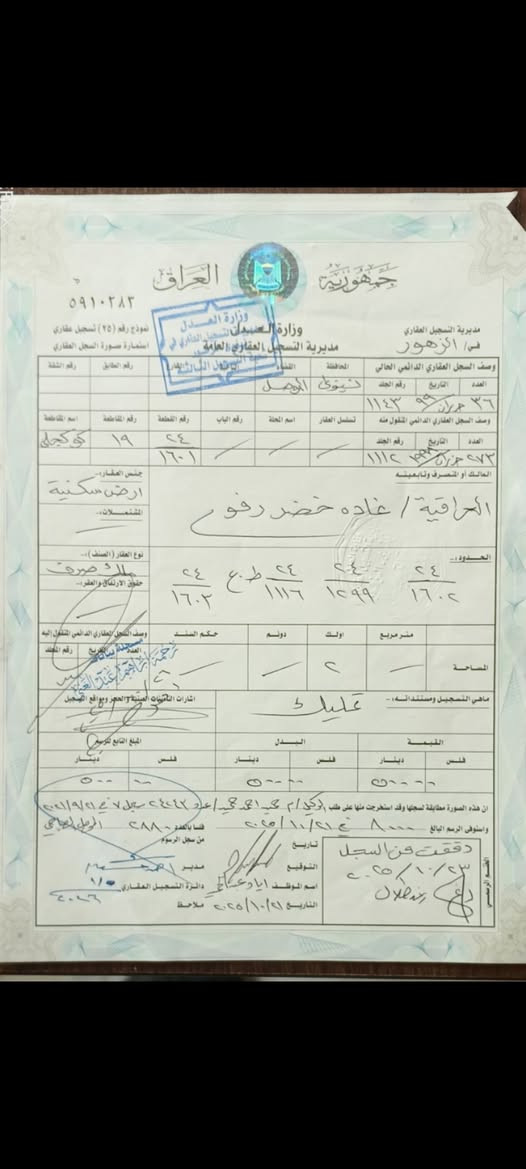 جمهورية العراق
٥٩١٠٢٨٣
وزارة العدل
مديرية التسجيل العقاري العامة
مديرية التسجيل العقاري
في / الزهور
نموذج رقم (٢٥) تسجيل عقاري
استمارة صورة السجل العقاري
وصف السجل العقاري الدائمي الحالي المحافظة القضاء رقم الطابق رقم الشقة
العدد التاريخ رقم الجلد نينوى الموصل
٣٦ حزيران ٩٩ ١١٤٣
وصف السجل العقاري الدائمي المنقول منه تسلسل العقار اسم المحلة رقم الباب رقم القطعة رقم المقاطعة اسم المقاطعة
العدد التاريخ رقم الجلد ٢٤ ١٩ كوكجلي
٢٧٣ حزيران ١١١٢ ١٦٠١
المالك أو المتصرف وتابعيته
العراقية / غاده خضر
جنس العقار:-
ارض سكنية
المشتملات:-
الحدود:-
٢٤ ٢٤ ٢٤ ط.ع ٢٤
١٦٠٢ ١٢٩٩ ١١١٦ ١٦٠٣
نوع العقار (الصنف):-
ملك صرف
حقوق الارتفاق والعقر:-
متر مربع اولك دونم حكم السند وصف السجل العقاري الدائمي المنقول إليه
العدد التاريخ رقم الجلد
المساحة ٢
ماهي التسجيل ومستنداته:- تمليك
اشارات التأمينات العينية والحجز ومواقع التسجيل
القيمة البدل المبلغ التابع للرسم
فلس دينار فلس دينار فلس دينار
ان هذه الصورة مطابقة لسجلها وقد استخرجت منها على طلب
واستوفى الرسم البالغ ٨٠٠٠ في ٢٠٢٥/١٠/٢١ فلسا بالعدد ٢٨٨٠
من سجل الرسوم
تاريخ
التوقيع
اسم الموظف
التاريخ ٢٠٢٥/١٠/٢١
مدير
دائرة التسجيل العقاري
ملاحظ
الختم الرسمي
دققت من السجل
٢٠٢٥/١٠/٢٣